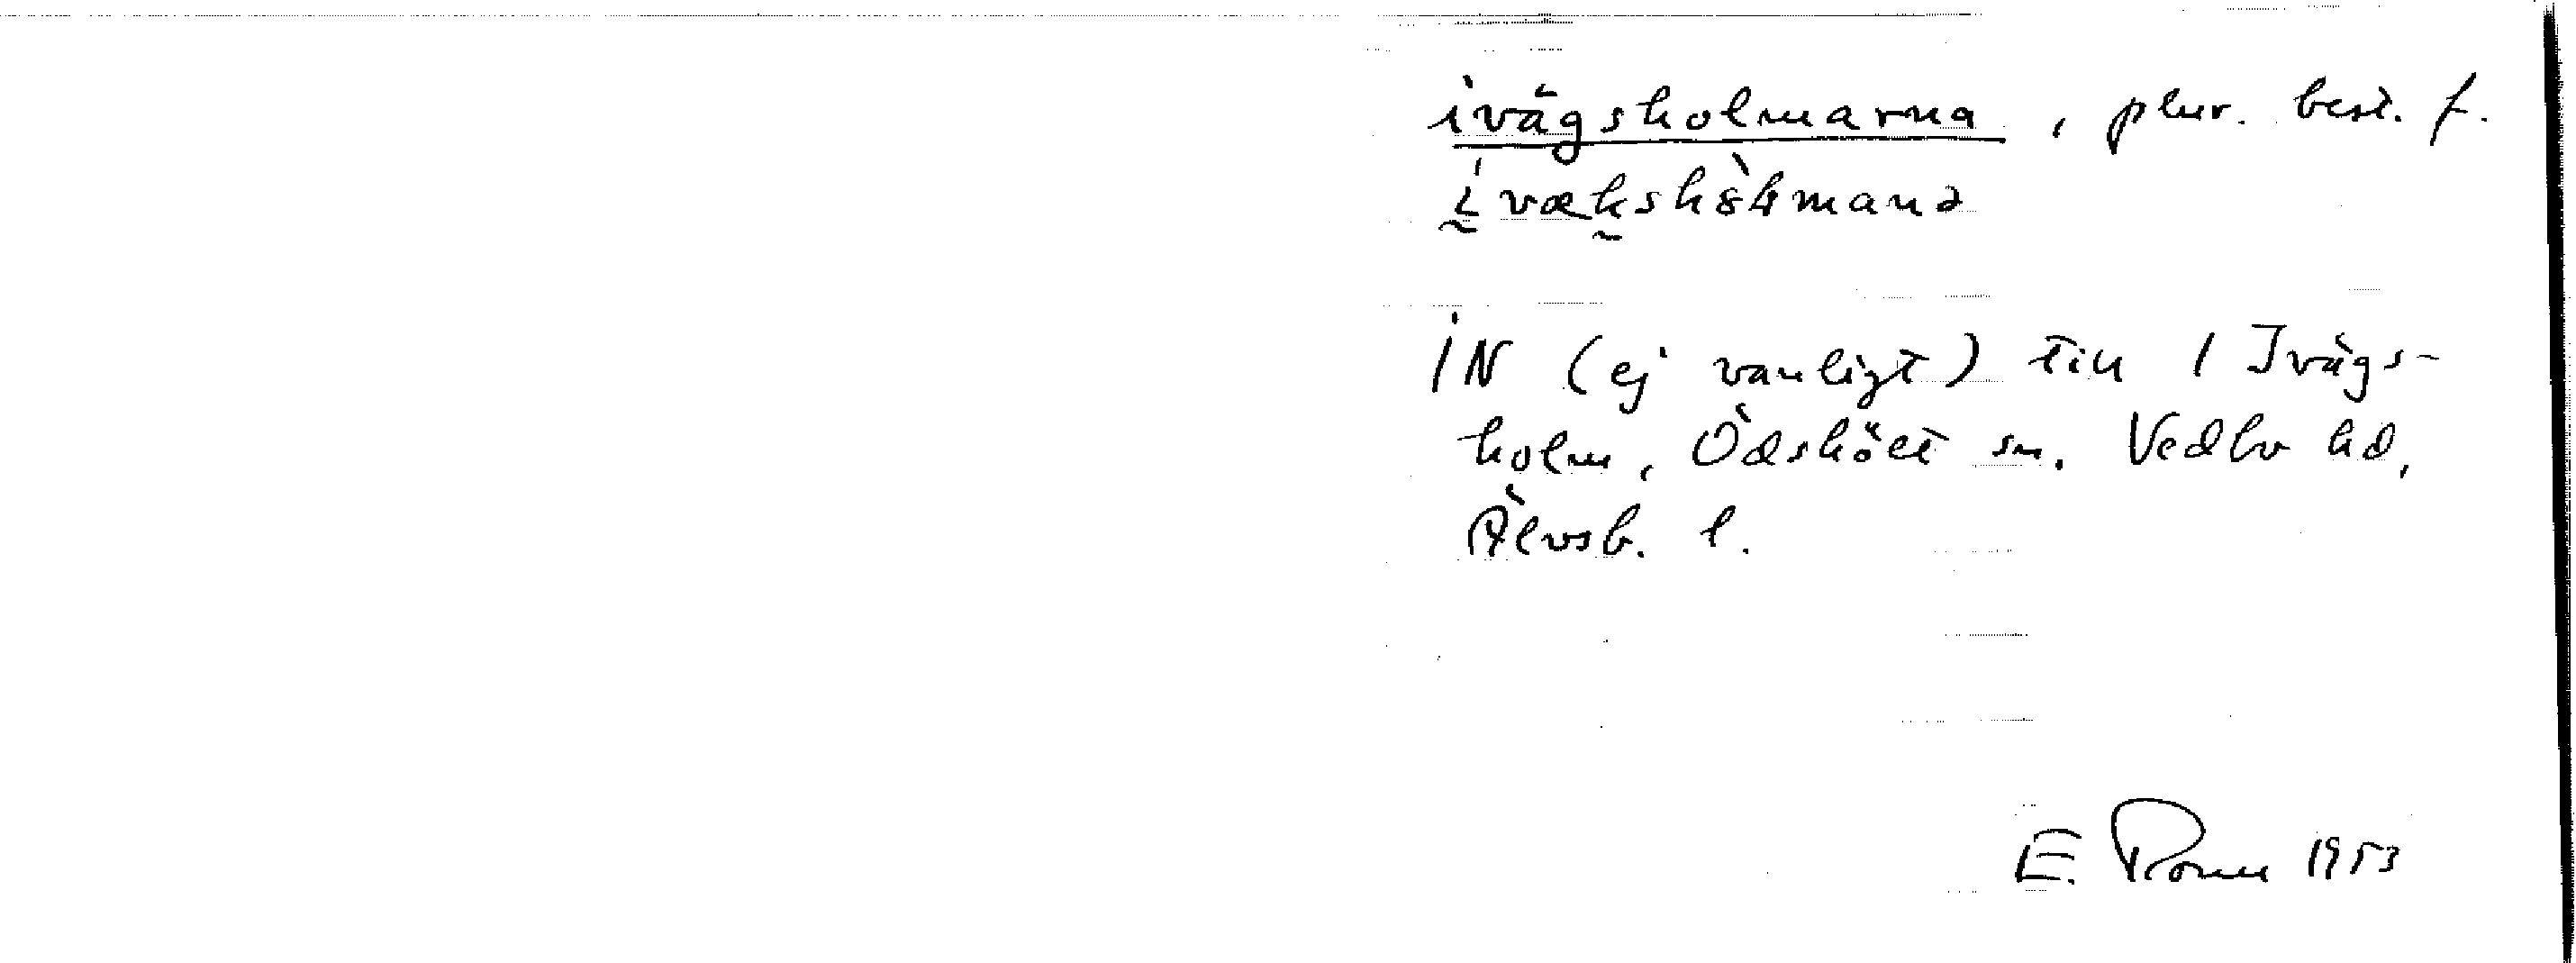 ivägsholmarna, plur. best. f.
IN (ej vanligt) till 1 Ivägs-
holm, Ödskölt sn. Vedbo hd,
Älvsb. l.
E. 1953